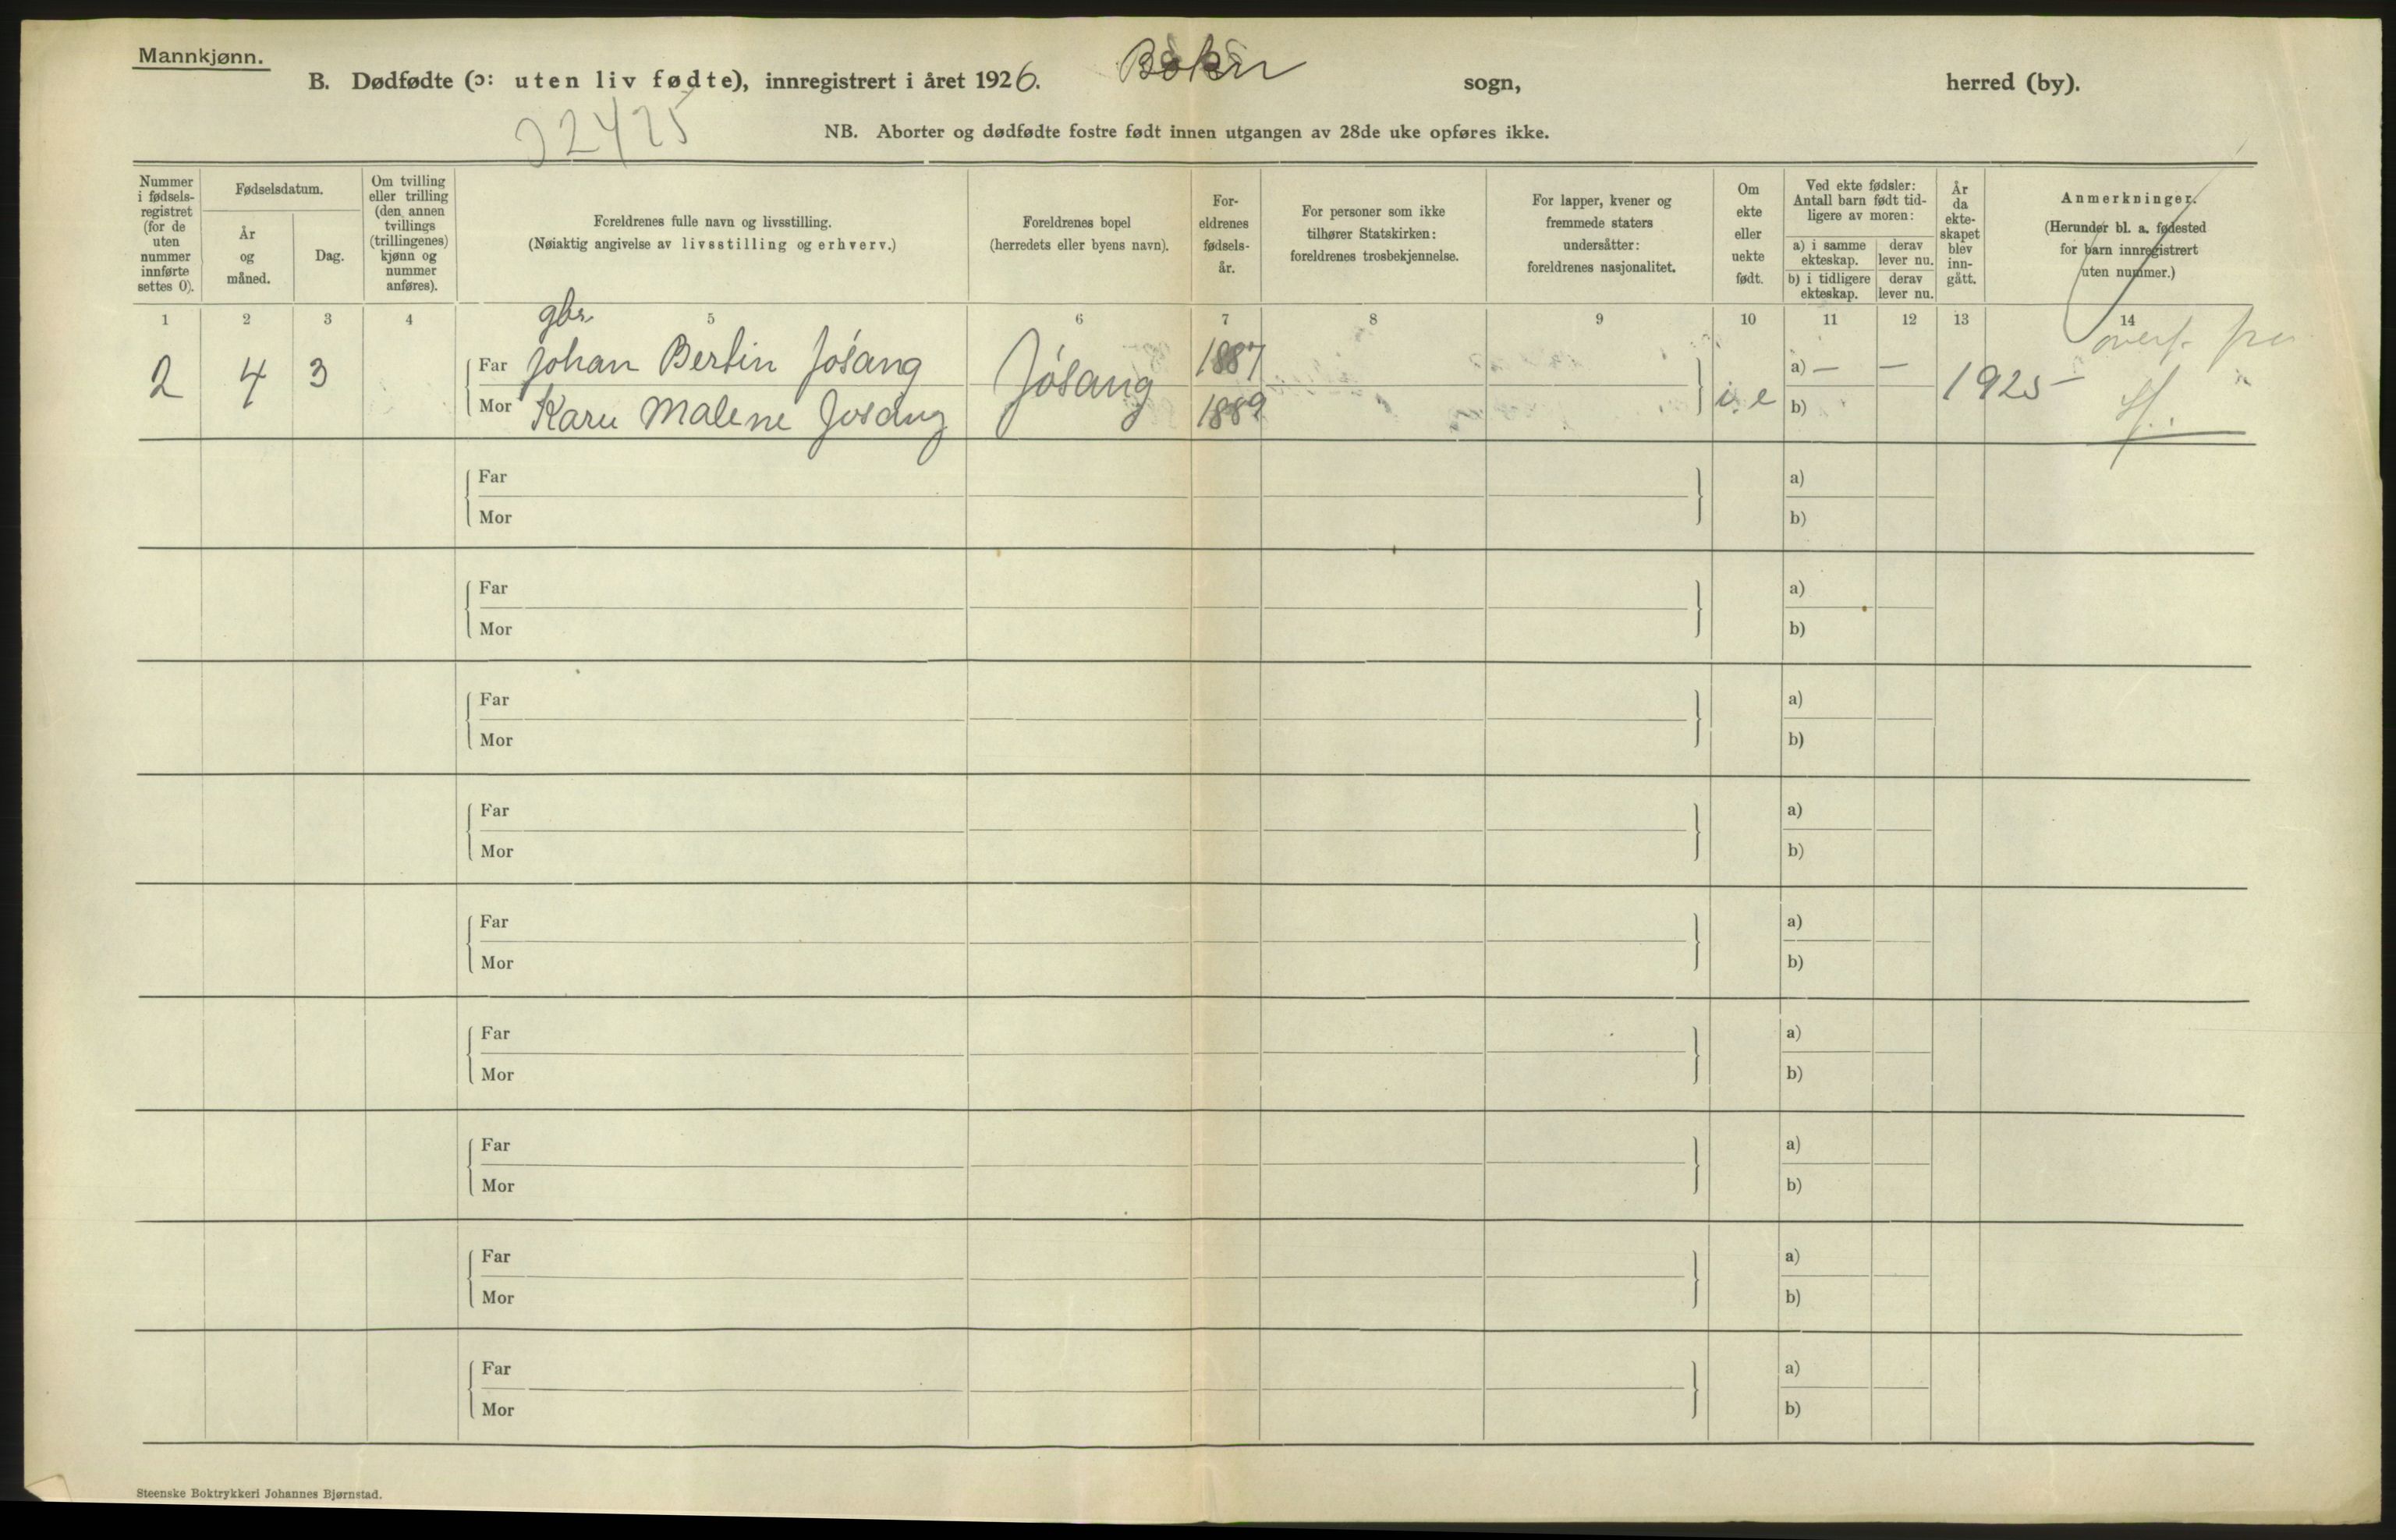 Mannkjønn.
B. Dødfødte (ɔ: uten liv fødte), innregistrert i året 1926. Bokn sogn, herred (by).
22425
NB. Aborter og dødfødte fostre født innen utgangen av 28de uke opføres ikke.
Nummer i fødsels-registret (for de uten nummer innførte settes 0).
Fødselsdatum.
År og måned.
Dag.
Om tvilling eller trilling (den annen tvillings (trillingenes) kjønn og nummer anføres).
Foreldrenes fulle navn og livsstilling.
(Nøiaktig angivelse av livsstilling og erhverv.)
Foreldrenes bopel
(herredets eller byens navn).
For-eldrenes fødsels-år.
For personer som ikke tilhører Statskirken: foreldrenes trosbekjennelse.
For lapper, kvener og fremmede staters undersåtter: foreldrenes nasjonalitet.
Om ekte eller uekte født.
Ved ekte fødsler: Antall barn født tid-ligere av moren:
a) i samme ekteskap.
derav lever nu.
b) i tidligere ekteskap.
derav lever nu.
År da ekte-skapet blev inn-gått.
Anmerkninger.
(Herunder bl. a. fødested for barn innregistrert uten nummer.)
1 2 3 4 5 6 7 8 9 10 11 12 13 14
gbr.
2 4 3 Far Johan Bertin Jósang Jósang 1887 i. e a) — — 1925 overf. fra
Mor Karen Malene Josang 1889 b)
Far a)
Mor b)
Far a)
Mor b)
Far a)
Mor b)
Far a)
Mor b)
Far a)
Mor b)
Far a)
Mor b)
Far a)
Mor b)
Far a)
Mor b)
Far a)
Mor b)
Steenske Boktrykkeri Johannes Bjørnstad.